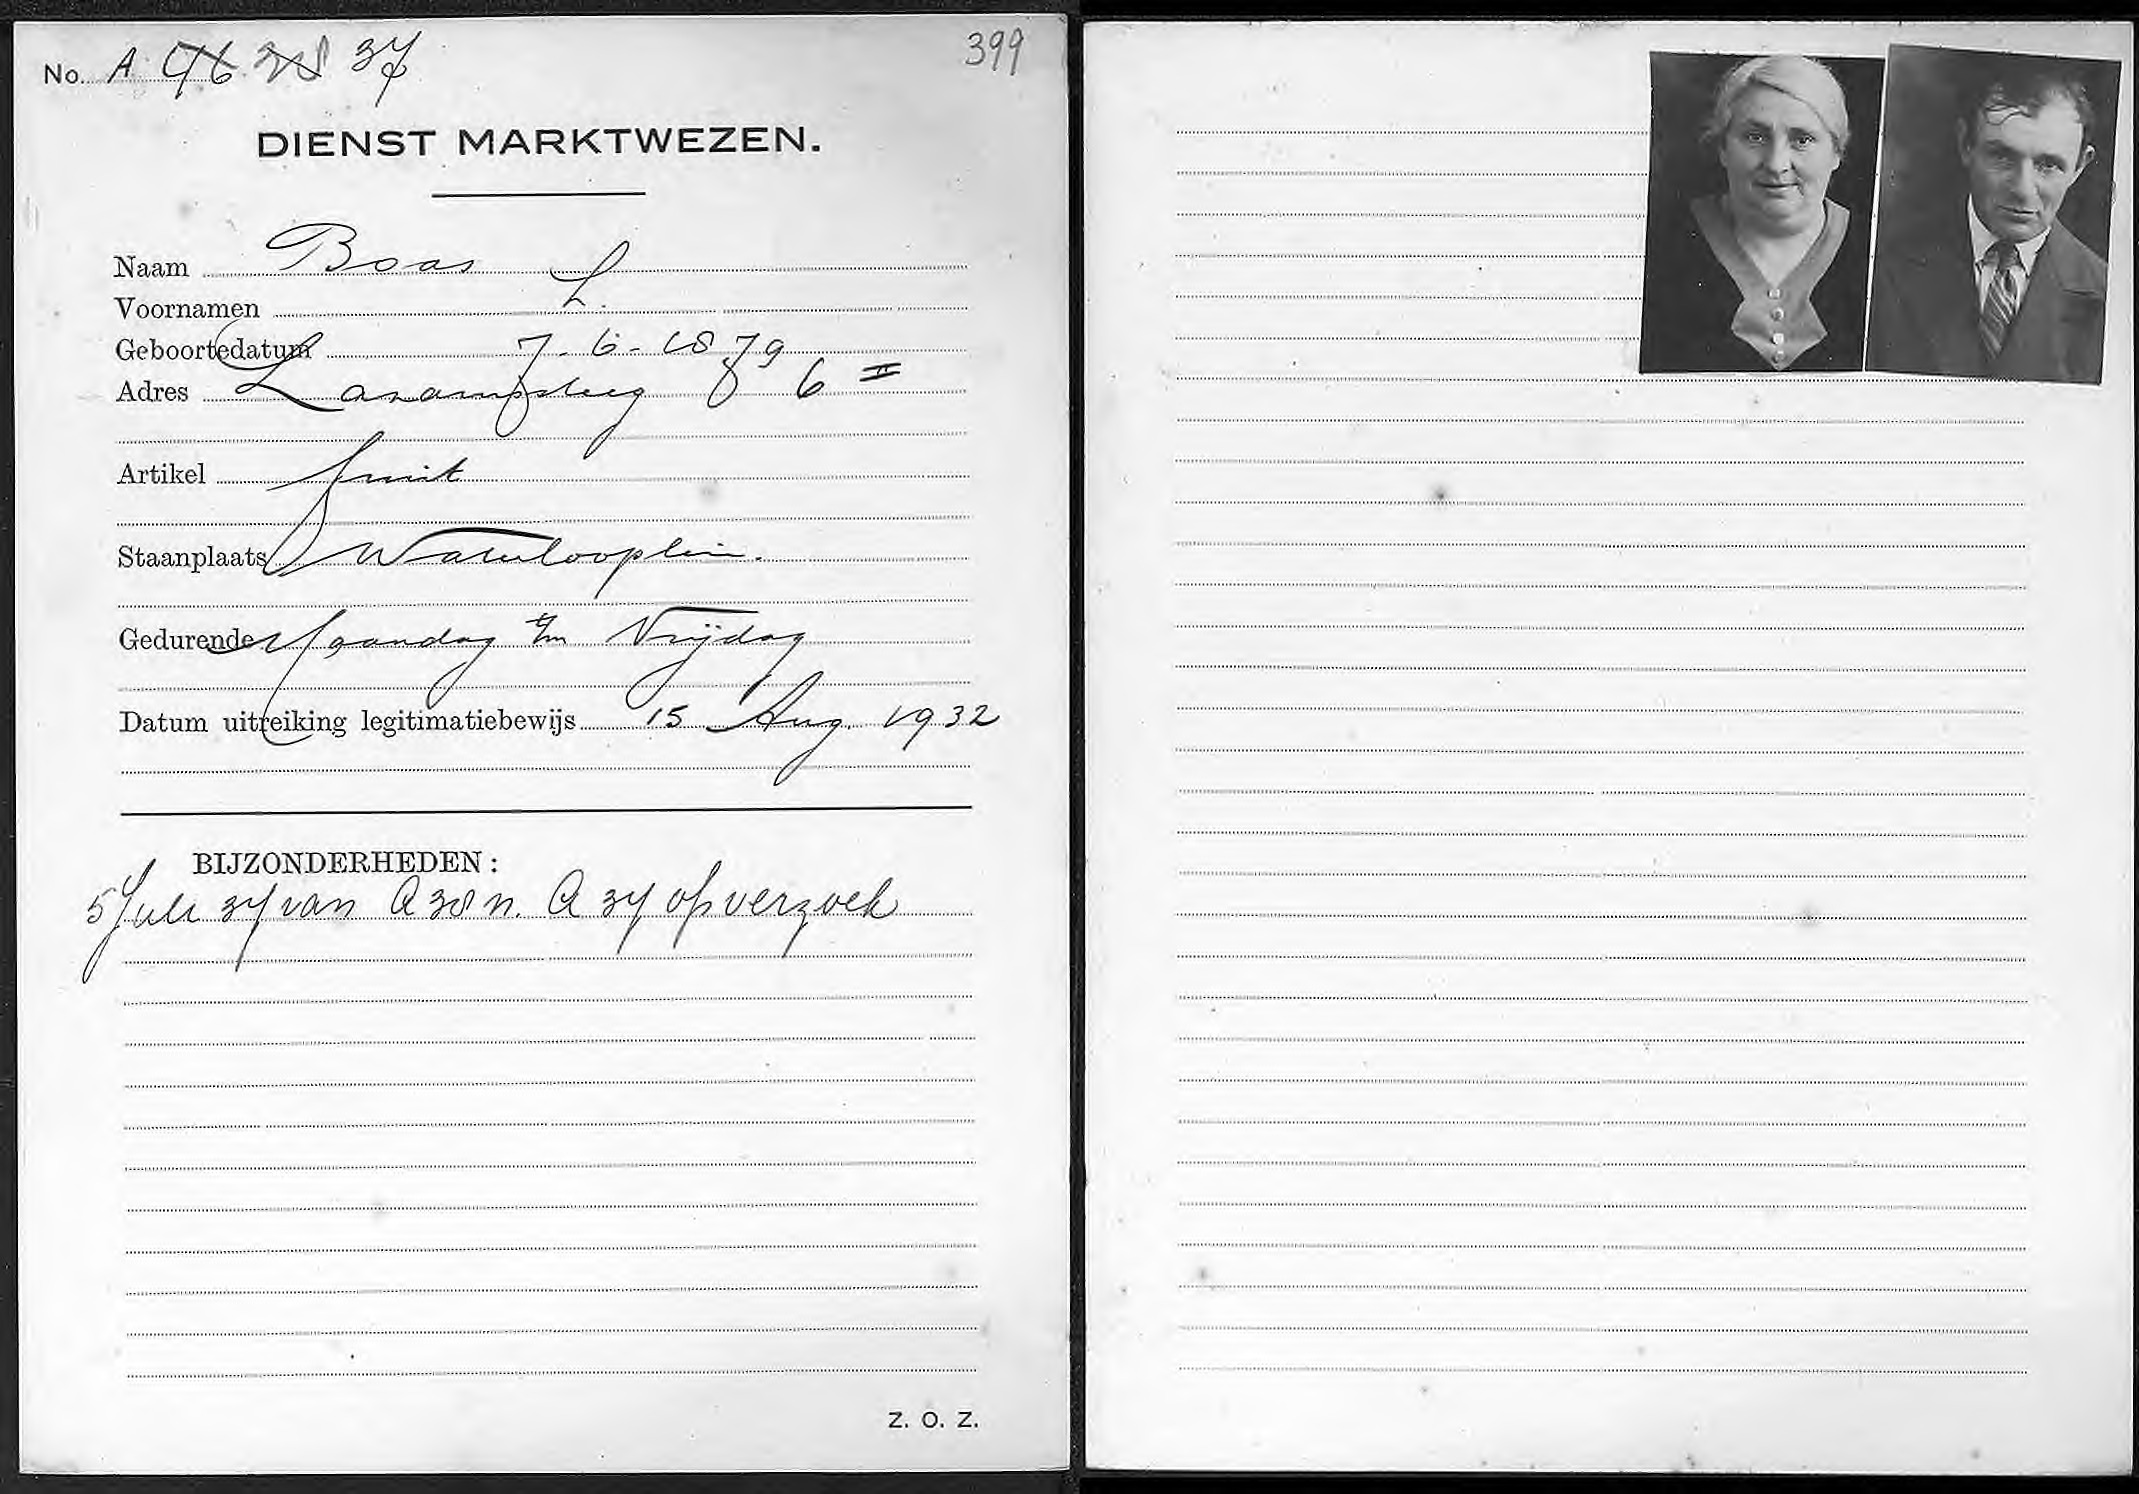 No. A 46 38 37
399
DIENST MARKTWEZEN.
Naam Boas
Voornamen L.
Geboortedatum 7-6-1879
Adres Lazarussteeg 6 II
Artikel fruit
Staanplaats Waterlooplein.
Gedurende Maandag t/m Vrijdag
Datum uitreiking legitimatiebewijs 15 Aug. 1932
BIJZONDERHEDEN:
5 Juli 37 van A 38 n. A 37 op verzoek
Z. O. Z.